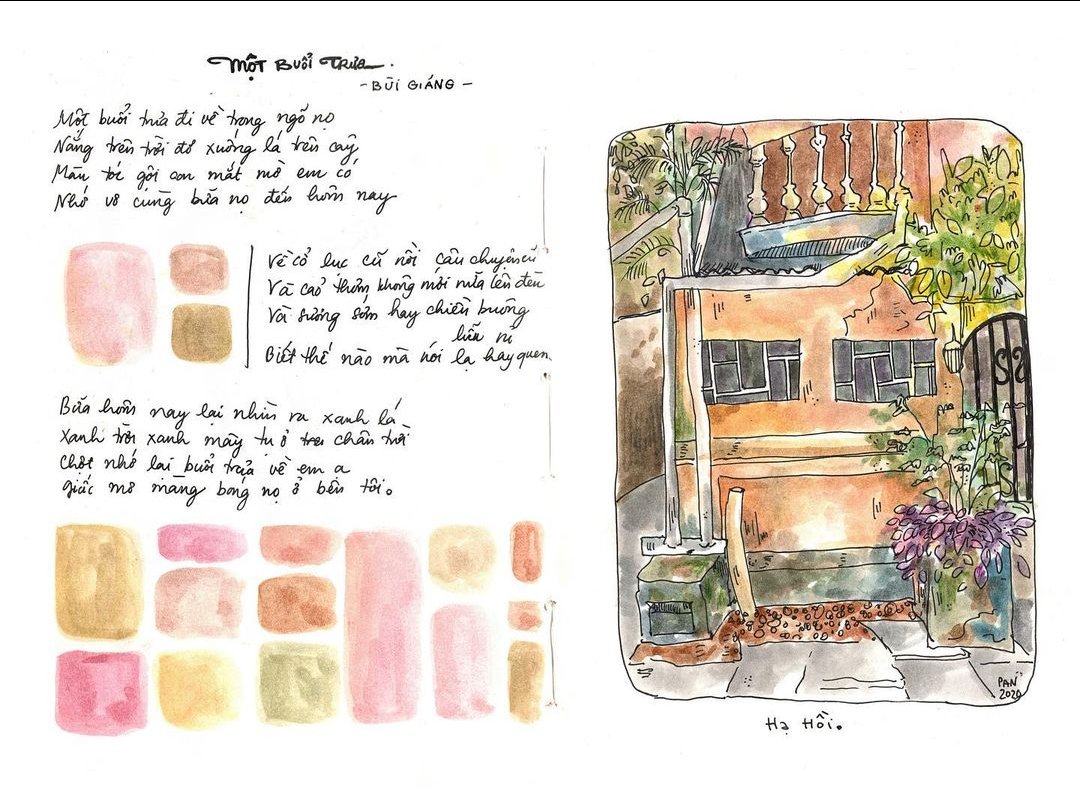 Một Buổi Trưa
- BÙI GIÁNG -
Một buổi trưa đi về trong ngõ nọ
Nắng trên trời đổ xuống lá trên cây
Màu tóc gội con mắt mở em có
Nhớ vô cùng bữa nọ đến hôm nay
Về cỏ lục cũ rồi câu chuyện cũ
Và cao thơm không nói nữa lên đèn
Và sương sớm hay chiều buông
lũ rũ
Biết thế nào mà nói lạ hay quen
Bữa hôm nay lại nhìn ra xanh lá
Xanh trời xanh mây tụ ở trên chân trời
Chợt nhớ lại buổi trưa về em ạ
Giấc mơ màng bóng nọ ở bên tôi.
S
S
PAN
2020
Hạ Hồi.